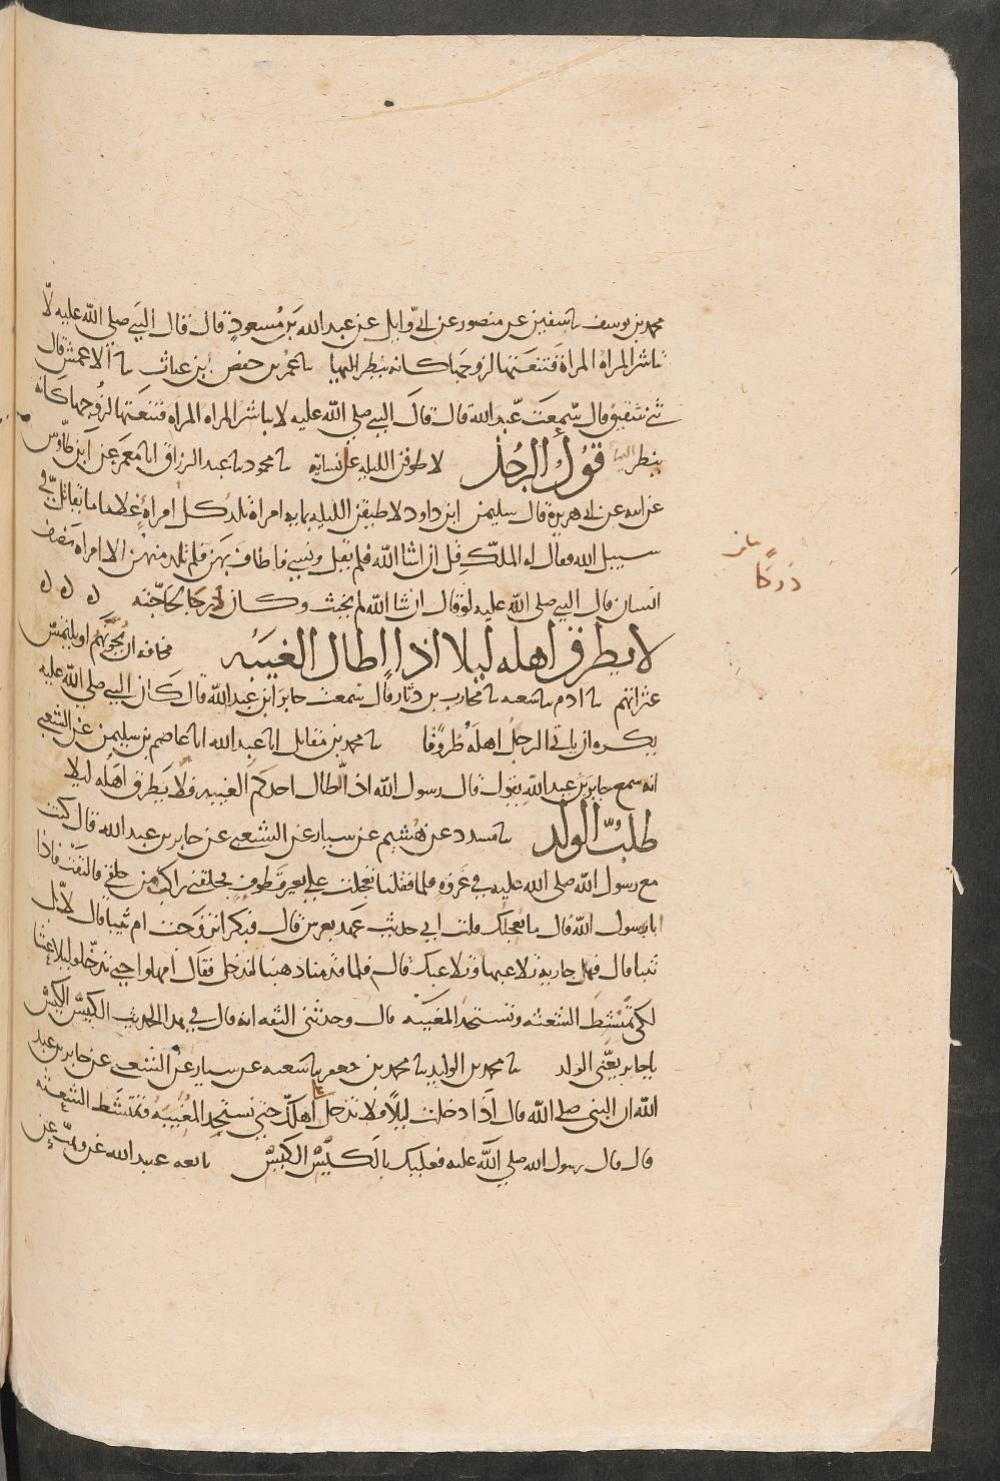 محمد بن يوسف ثنا سفين عن منصور عن ابي وايل عن عبد الله بن مسعود قال قال النبي صلى الله عليه لا
تباشر المراة المراة فتنعتها لزوجها كانه ينظر اليها ثنا عمر بن حفص بن غياث ثنا ابي ثنا الاعمش قال
ثني شقيق قال سمعت عبد الله قال قال النبي صلى الله عليه لا تباشر المراه المراه فتنعتها لزوجها كانه
ينظر اليها قول الرجل لاطوفن الليله على نسايه ثنا محمود ثنا عبد الرزاق انا معمر عن ابن طاوس
عن ابيه عن ابي هريرة قال سليمن ابن داود لاطيفن الليله بمايه امراة تلد كل امراة غلاما يقاتل في
سبيل الله فقال له الملك قل ان شا الله فلم يقل ونسي فاطاف بهن فلم تلد منهن الا امراه نصف
انسان قال النبي صلى الله عليه لو قال ان شا الله لم يحنث وكان ارجا لحاجته
لا يطرق اهله ليلا اذا اطال الغيبه مخافه ان يخونهم او يلتمس
عثراتهم ثنا ادم ثنا شعبه ثنا محارب بن دثار قال سمعت جابر ابن عبد الله قال كان النبي صلى الله عليه
يكره ان ياتي الرجل اهله طروقا ثنا محمد بن مقاتل انا عبد الله انا عاصم بن سليمن عن الشعبي
انه سمع جابر بن عبد الله يقول قال رسول الله اذا اطال احدكم الغيبه فلا يطرق اهله ليلا
طلب الولد ثنا مسدد عن هشيم عن سيار عن الشعبي عن جابر بن عبد الله قال كنت
مع رسول الله صلى الله عليه في غزوه فلما قفلنا تعجلت على بعير قطوف فلحقني راكب من خلفي فالتفت فاذا
انا برسول الله قال ما يعجلك قلت اني حديث عهد بعرس قال فبكرا تزوجت ام ثيبا قال لا بل
ثيبا قال فهل جارية تلاعبها وتلاعبك قال فلما قدمنا ذهبنا لندخل فقال امهلوا حتي تدخلوا ليلا عشا
لكي تمتشط الشعثه وتستحد المغيبه قال وحدثني الثقه انه قال في هذا الحديث الكيس الكيس
يا جابر يعني الولد ثنا محمد بن الوليد ثنا محمد بن جعفر ثنا شعبه عن سيار عن الشعبي عن جابر بن عبد
الله ان النبي صلى الله قال اذا دخلت ليلا فلا تدخل على اهلك حتي تستحد المغيبه وتمتشط الشعثه
قال قال رسول الله صلي الله عليه فعليك بالكيس الكيس تابعه عبيد الله عن وهب عن